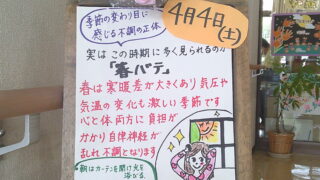 季節の変わり目に
感じる不調の正体
4月4日(土)
実はこの時期に多く見られるのが
「春バテ」
春は寒暖差が大きくあり気圧や
気温の変化も激しい季節です
心と体両方に負担が
かかり自律神経が
乱れ不調となります
朝はカーテンを開け光を
浴びる